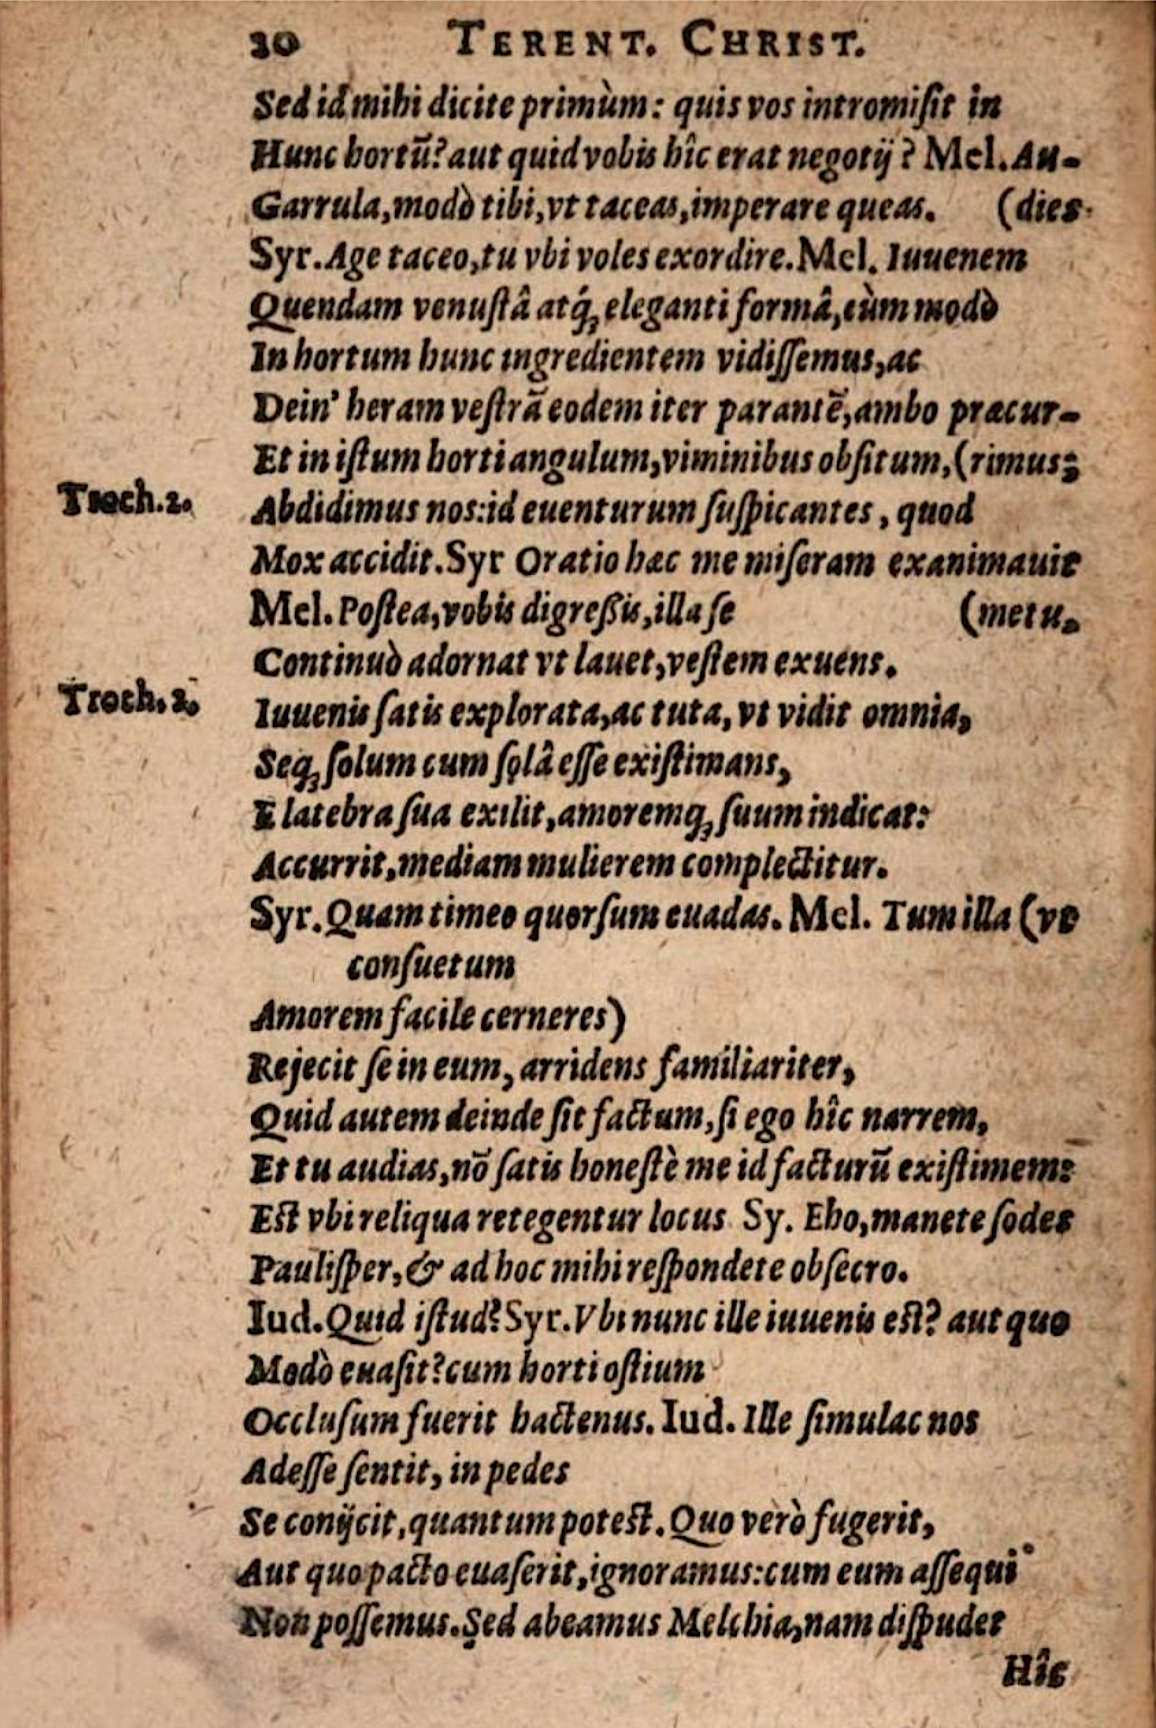 20 TERENT. CHRIST.
Sed id mihi dicite primùm: quis vos intromiſit in
Hunc hortū? aut quid vobis hîc erat negotij? Mel. Au-
Garrula, modò tibi, vt taceas, imperare queas. (dies
Syr. Age taceo, tu vbi voles exordire. Mel. Iuuenem
Quendam venuſtâ atq́ꝫ eleganti formâ, cùm modò
In hortum hunc ingredientem vidiſſemus, ac
Dein' heram veſtrā eodem iter parantē, ambo præcur-
Et in iſtum horti angulum, viminibus obſitum, (rimus;
Troch. 2. Abdidimus nos: id euenturum ſuſpicantes, quod
Mox accidit. Syr Oratio hæc me miſeram exanimauit
Mel. Poſtea, vobis digreßis, illa ſe (metu.
Continuò adornat vt lauet, veſtem exuens.
Troch. 2. Iuuenis ſatis explorata, ac tuta, vt vidit omnia,
Seqꝫ ſolum cum ſolâ eſſe exiſtimans,
E latebra ſua exilit, amoremqꝫ ſuum indicat:
Accurrit, mediam mulierem complectitur.
Syr. Quam timeo quorſum euadas. Mel. Tum illa (vt
conſuetum
Amorem facile cerneres)
Rejecit ſe in eum, arridens familiariter,
Quid autem deinde ſit factum, ſi ego hîc narrem,
Et tu audias, nō ſatis honeſtè me id facturū exiſtimem:
Eſt vbi reliqua retegentur locus Sy. Eho, manete ſodes
Pauliſper, & ad hoc mihi reſpondete obſecro.
Iud. Quid iſtud? Syr. Vbi nunc ille iuuenis eſt? aut quo
Modò euaſit? cum horti oſtium
Occluſum fuerit hactenus. Iud. Ille ſimulac nos
Adeſſe ſentit, in pedes
Se conijcit, quantum poteſt. Quo verò fugerit,
Aut quo pacto euaſerit, ignoramus: cum eum aſſequi
Non poſſemus. Sed abeamus Melchia, nam diſpudet
Hîc